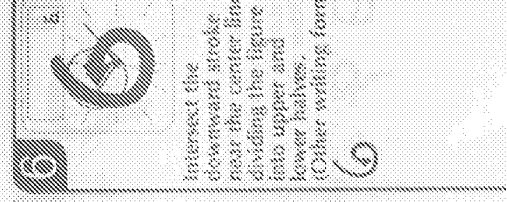 6
Intersect the
downward stroke
near the center line
dividing the figure
into upper and
lower halves.
(Other writing form